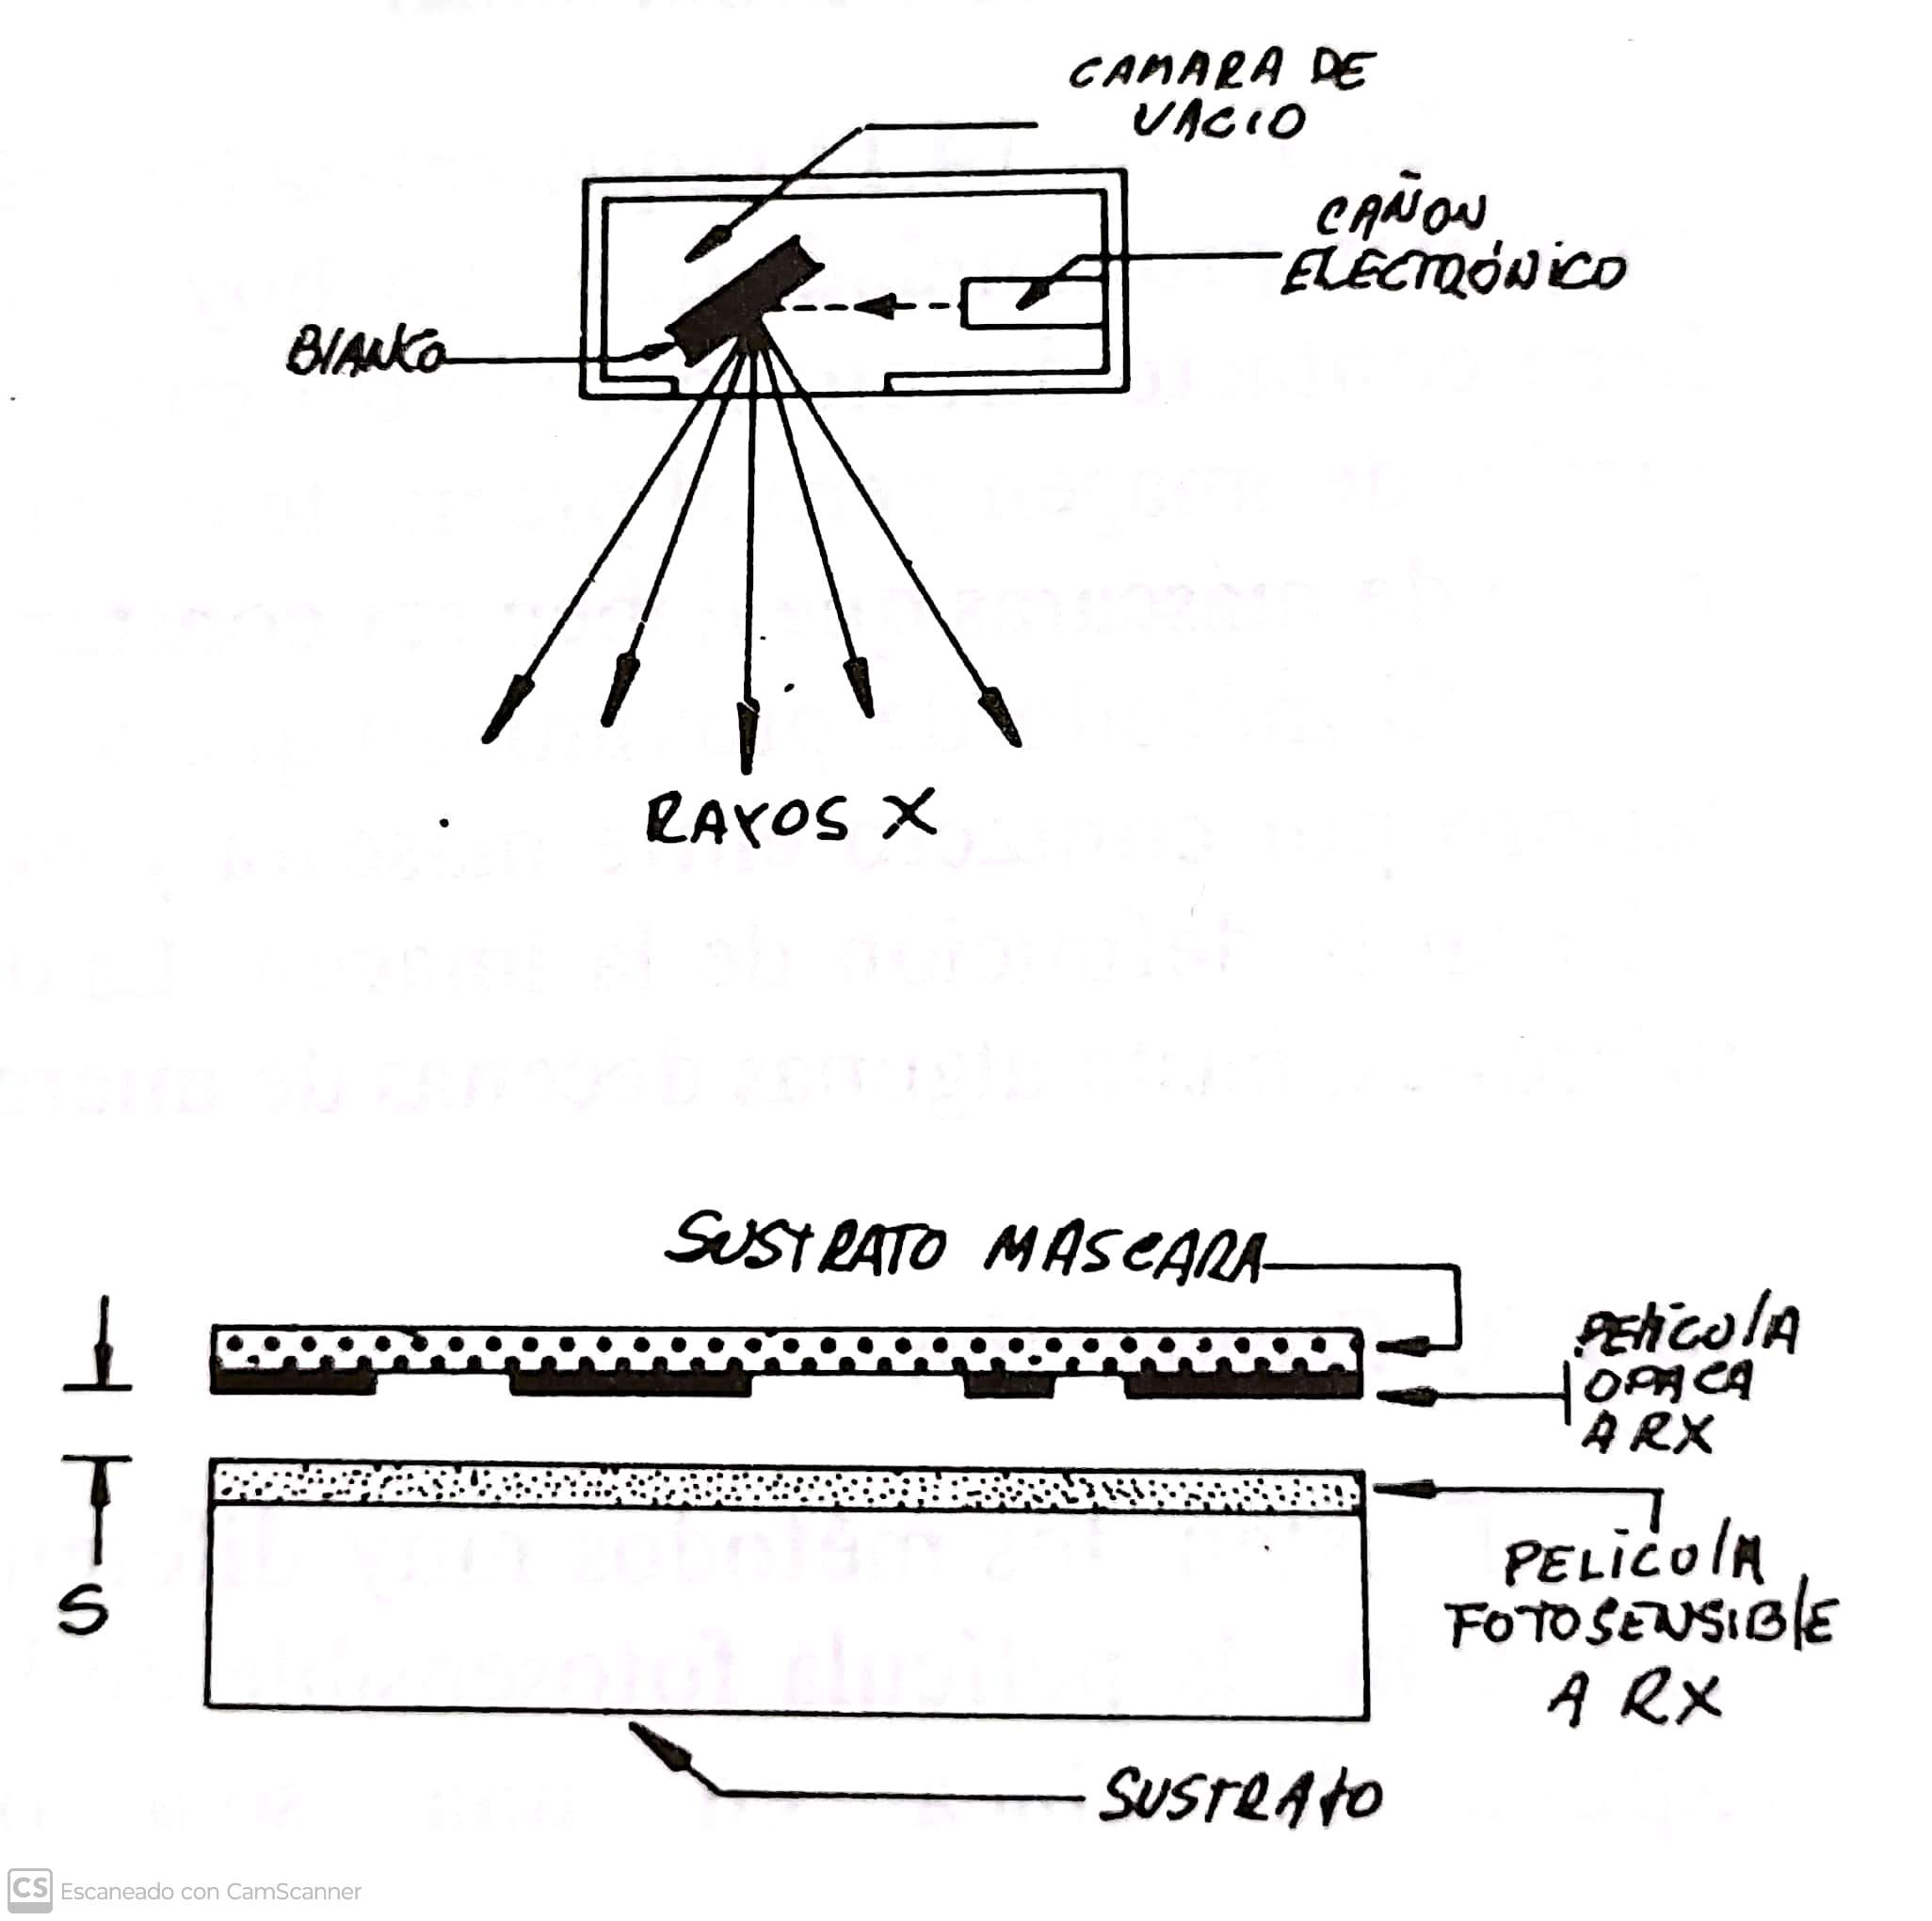 CAMARA DE
VACIO
CAÑON
ELECTRÓNICO
BlANCO
RAYOS X
SUSTRATO MASCARA
PELÍCUlA
OPACA
A RX
S
PELÍCUlA
FOTOSENSIBlE
A RX
SUSTRATO
CS Escaneado con CamScanner